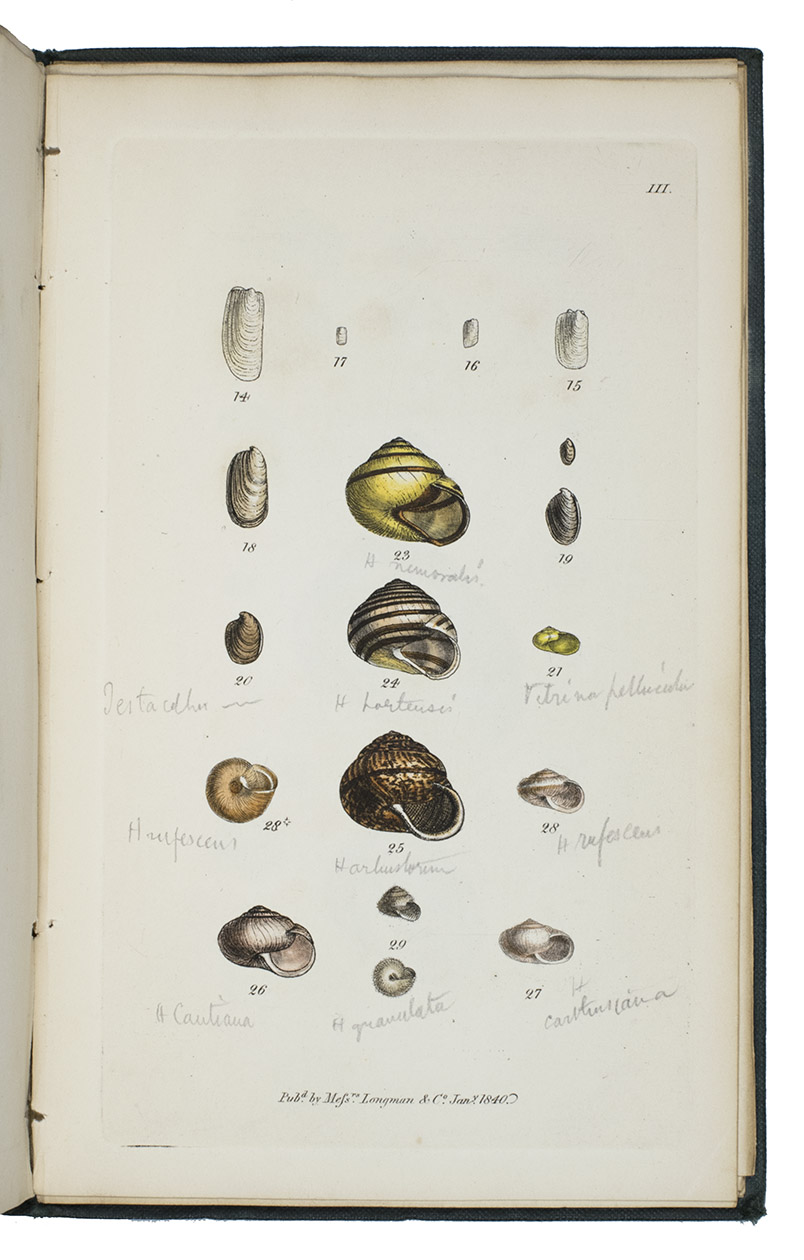 III.
14
17
16
15
18
23
19
H nemoralis
20
24
21
Testacellus
H hortensis
Vitrina pellucida
28*
25
28
H rufescens
H arbustorum
H rufescens
29
26
27
H Cantiana
H granulata
H
carthusiana
Pubd. by Messrs. Longman & Co. Jany. 1840.